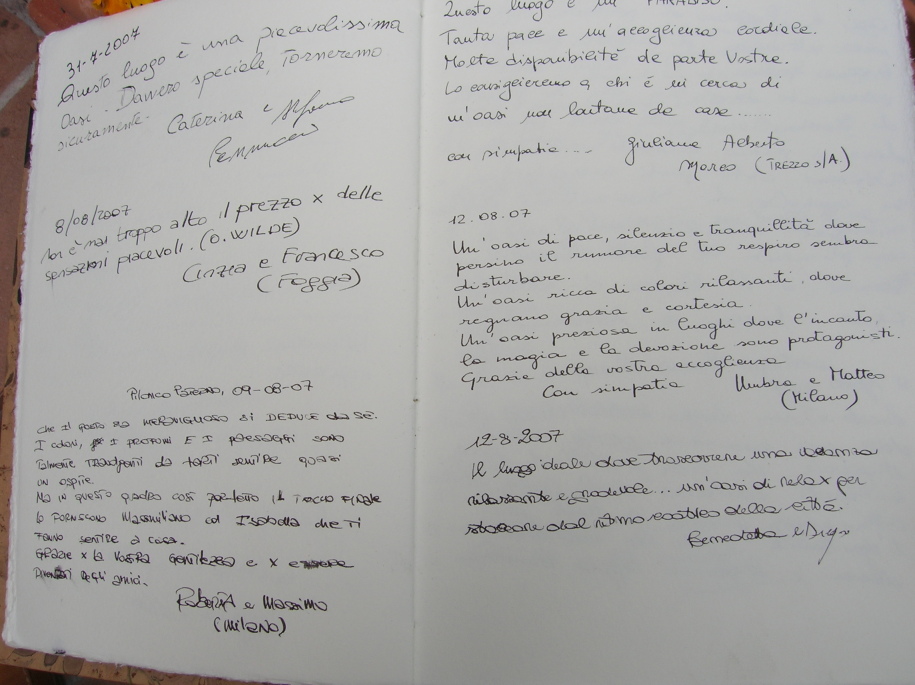 31-7-2007
Questo luogo è una piacevolissima
oasi. Davvero speciale, Torneremo
sicuramente.
Caterina e Alfonso
8/08/2007
Non è mai troppo alto il prezzo x delle
sensazioni piacevoli. (O. WILDE)
Cinzia e Francesco
(Foggia)
09-08-07
che il posto sia MERAVIGLIOSO si DEDUCE da SÉ.
I colori, I PROFUMI E I PAESAGGI SONO
talmente da farti sentire quasi
un ospite.
Ma in questo quadro così perfetto il tocco FINALE
lo FORNISCONO Massimiliano ed Isabella che Ti
FANNO sentire a casa.
GRAZIE x la VOSTRA GENTILEZZA e x essere
degli amici.
Roberta e Massimo
(Milano)
Questo luogo è un PARADISO.
Tanta pace e un'accoglienza cordiale.
Molta disponibilità da parte Vostra.
Lo consiglieremo a chi è in cerca di
un'oasi non lontana da casa.......
con simpatia.... Giuliana Alberto
(TREZZO s/A.)
12.08.07
Un'oasi di pace, silenzio e tranquillità dove
persino il rumore del tuo respiro sembra
disturbare.
Un'oasi ricca di colori rilassanti, dove
regnano grazia e cortesia.
Un'oasi preziosa in luoghi dove l'incanto,
la magia e la devozione sono protagonisti.
Grazie della vostra accoglienza
Con simpatia Umbra e Matteo
(Milano)
12-8-2007
Il luogo ideale dove trascorrere una vacanza
rilassante e gradevole... un'oasi di relax per
staccare dal ritmo della città.
Benedetta e